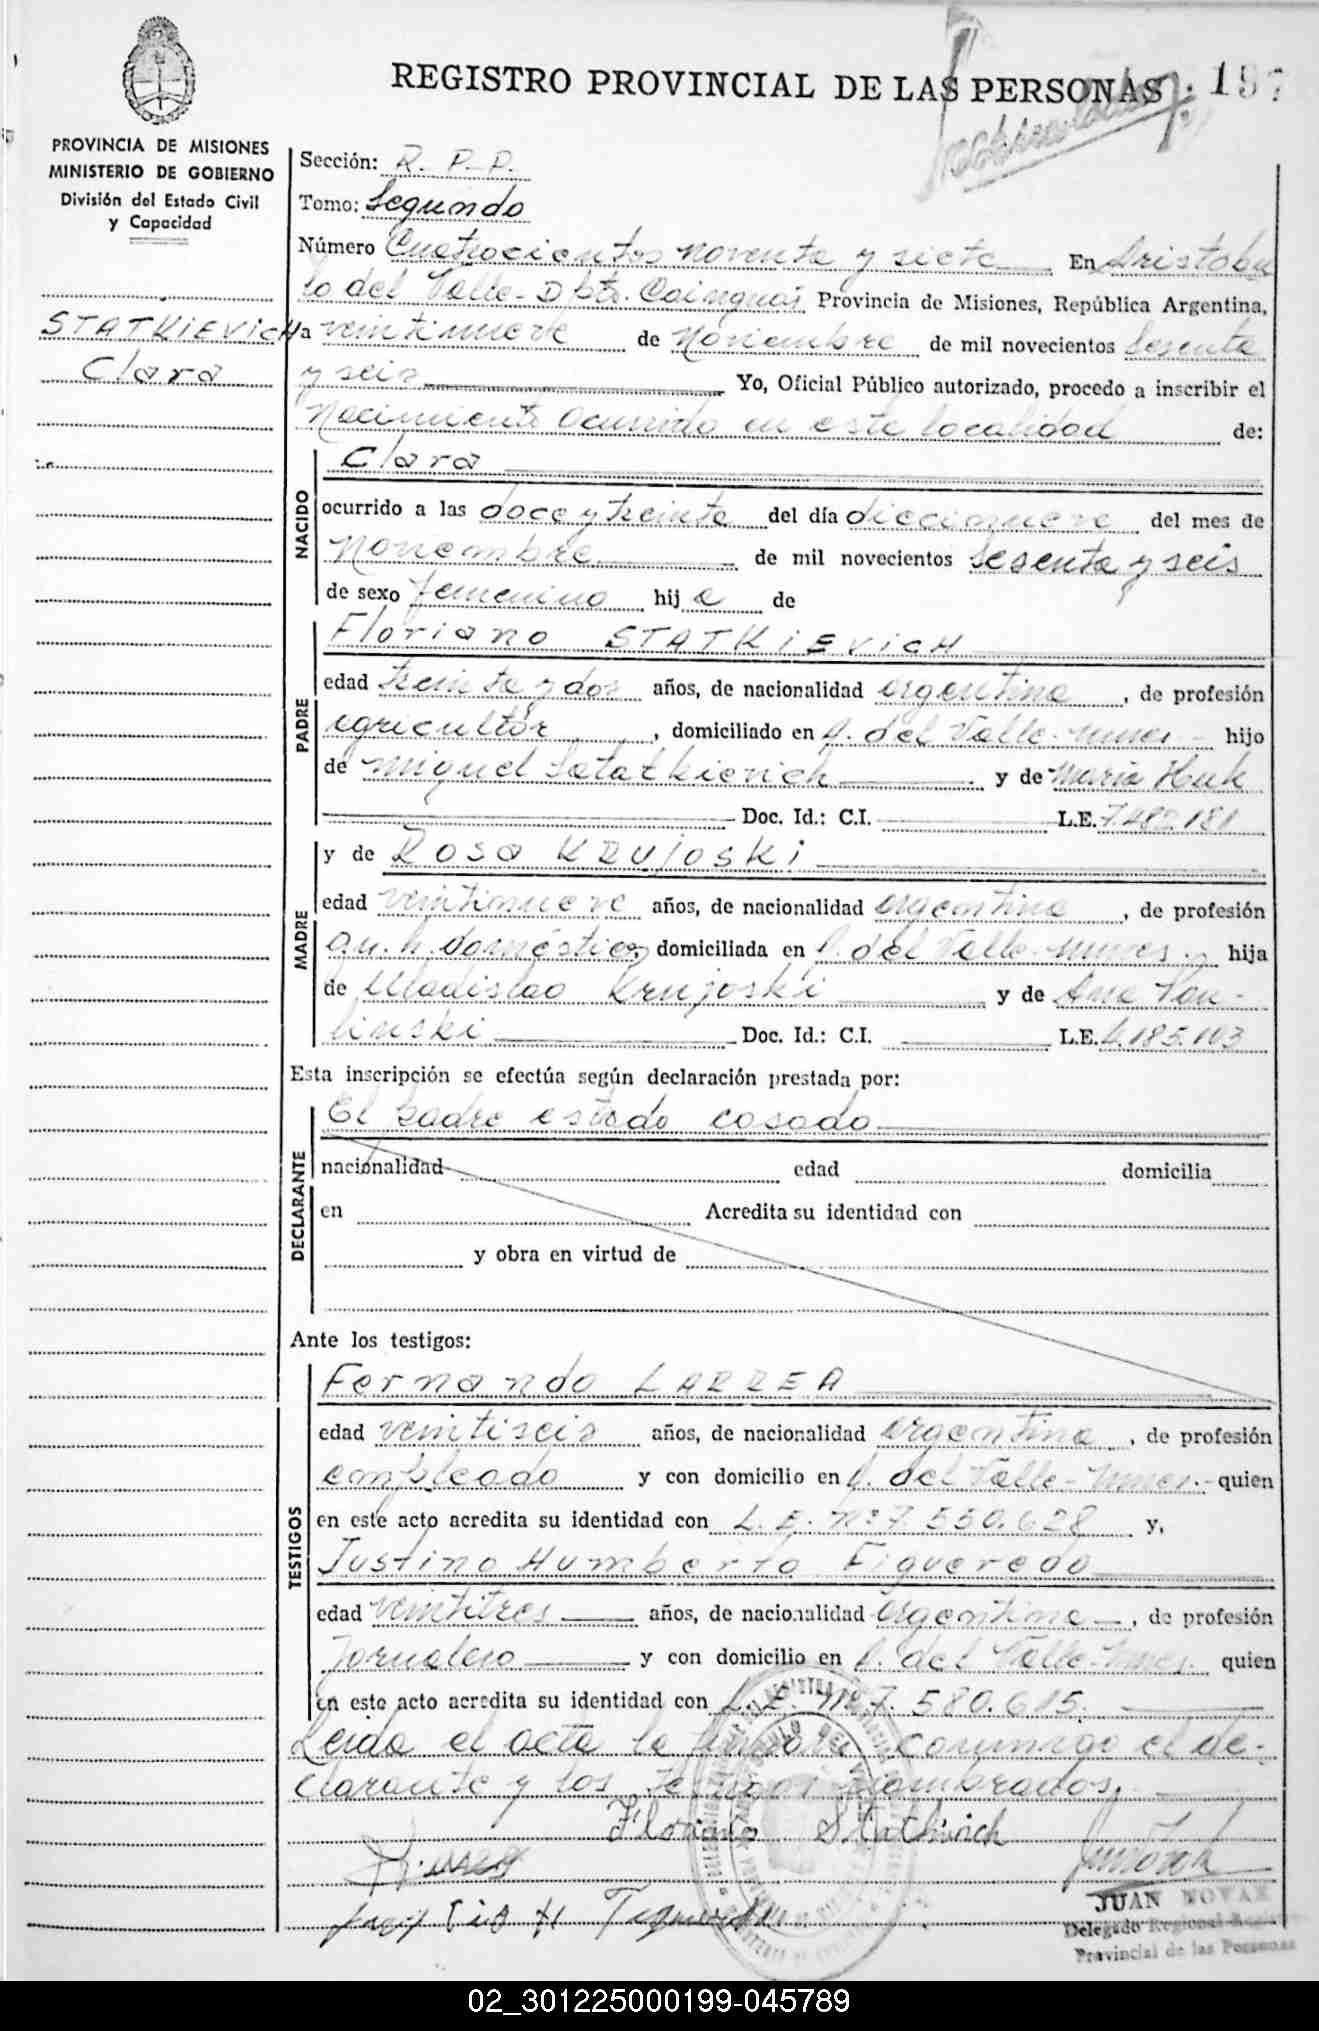 REGISTRO PROVINCIAL DE LAS PERSONAS
197
PROVINCIA DE MISIONES
MINISTERIO DE GOBIERNO
División del Estado Civil
y Capacidad
STATKIEVICH
Clara
Sección: R. P. P.
Tomo: Segundo
Número Cuatrocientos noventa y siete En Aristobu
lo del Valle - Dpto. Cainguas Provincia de Misiones, República Argentina,
a veintinueve de Noviembre de mil novecientos sesenta
y seis Yo, Oficial Público autorizado, procedo a inscribir el
Nacimiento Ocurrido en esta localidad de:
NACIDO
Clara
ocurrido a las doce y treinta del día diecinueve del mes de
Noviembre de mil novecientos sesenta y seis
de sexo femenino hij a de
PADRE
Floriano STATKIEVICH
edad treinta y dos años, de nacionalidad argentina, de profesión
agricultor, domiciliado en A. del Valle - Mnes - hijo
de Miguel Statkievich y de Maria Huk
Doc. Id.: C.I. L.E. 7.482.181
MADRE
y de Rosa KRUJOSKI
edad veintinueve años, de nacionalidad argentina, de profesión
qu. h. domésticos domiciliada en A. del Valle - Mnes. hija
de Uladislao Krujoski y de Ana Pau-
linski Doc. Id.: C.I. L.E. 4.185.103
Esta inscripción se efectúa según declaración prestada por:
DECLARANTE
El padre estado casado
nacionalidad edad domicilia
en Acredita su identidad con
y obra en virtud de
Ante los testigos:
TESTIGOS
Fernando LARREA
edad veintiseis años, de nacionalidad argentina, de profesión
empleado y con domicilio en A. del Valle - Mnes. - quien
en este acto acredita su identidad con L. E. Nº 7.550.628 y,
Justino Humberto Figueredo
edad veintitres años, de nacionalidad argentina, de profesión
Jornalero y con domicilio en A. del Valle - Mnes. quien
en este acto acredita su identidad con L. E. Nº 7.580.615.
Leida el acta la firman conmigo el de-
clarante y los testigos nombrados.
Floriano Statkivich
JUAN NOVAK
Delegado Regional Registro
Provincial de las Personas
02_301225000199-045789